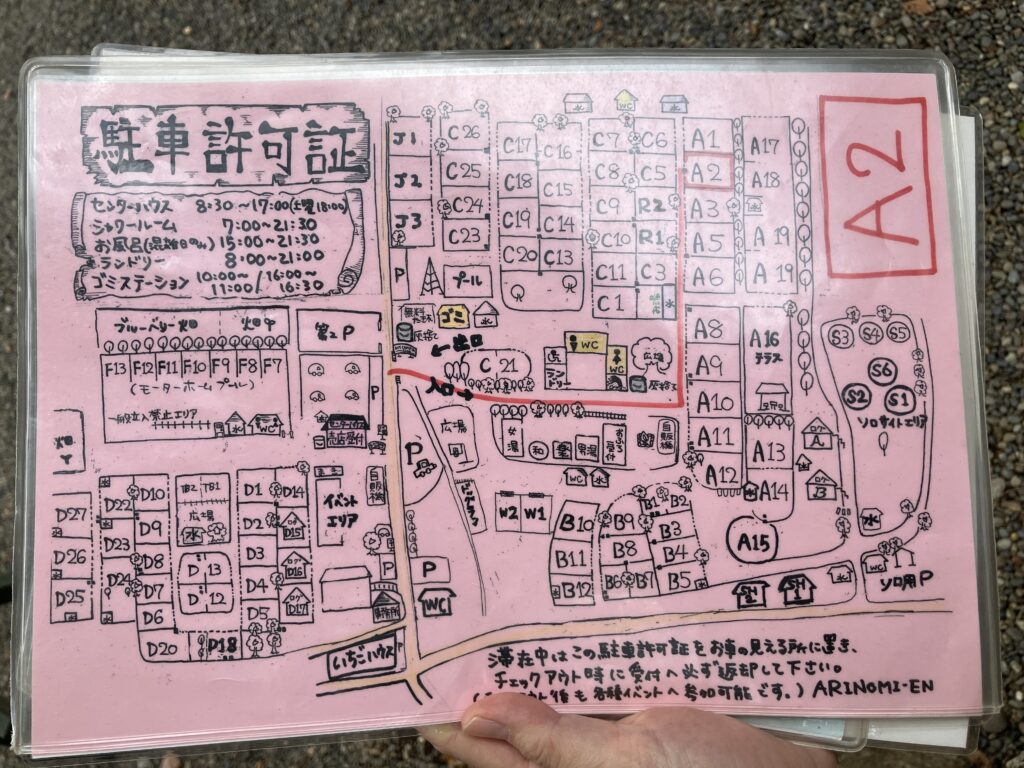 駐車許可証
センターハウス 8:30〜17:00(土曜18:00)
シャワールーム 7:00〜21:30
お風呂(混雑日のみ)15:00〜21:30
ランドリー 8:00〜21:00
ゴミステーション 10:00〜11:00/16:00〜16:30
A2
J1
J2
J3
P
C26
C25
C24
C23
プール
C17
C18
C19
C20
C16
C15
C14
C13
WC
水
C7
C8
C9
C10
C11
C1
C6
C5
R2
R1
C3
水
A1
A2
A3
A5
A6
A8
A9
A10
A11
A12
A17
A18
水
A19
A19
A16
テラス
A13
A14
A15
S3
S4
S5
S6
S2
S1
ソロサイトエリア
水
WC
ソロ用P
ブルーベリー畑
畑
第2P
F13
F12
F11
F10
F9
F8
F7
(モーターホームプール)
一般立入禁止エリア
水
WC
売店受付
P
無料
ゴミ
水
←出口
入口→
C21
ランドリー
WC
WC
広場
広場
P
女湯
和
男湯
受付
自販機
WC
水
W2
W1
B10
B11
B12
B9
B8
B6
B7
B1
B2
B3
B4
B5
D27
D26
D25
D22
D23
D24
D10
D9
D8
D7
D6
D20
TB2
TB1
広場
水
D13
D12
P18
D1
D2
D3
D4
D5
D14
ログD15
ログD16
ログD17
イベントエリア
自販機
P
事務所
P
WC
いちごハウス
ログA
ログB
SH2
SH1
水
滞在中はこの駐車許可証をお車の見える所に置き、
チェックアウト時に受付へ必ず返却して下さい。
ト後も各種イベントへ参加可能です。) ARINOMI-EN